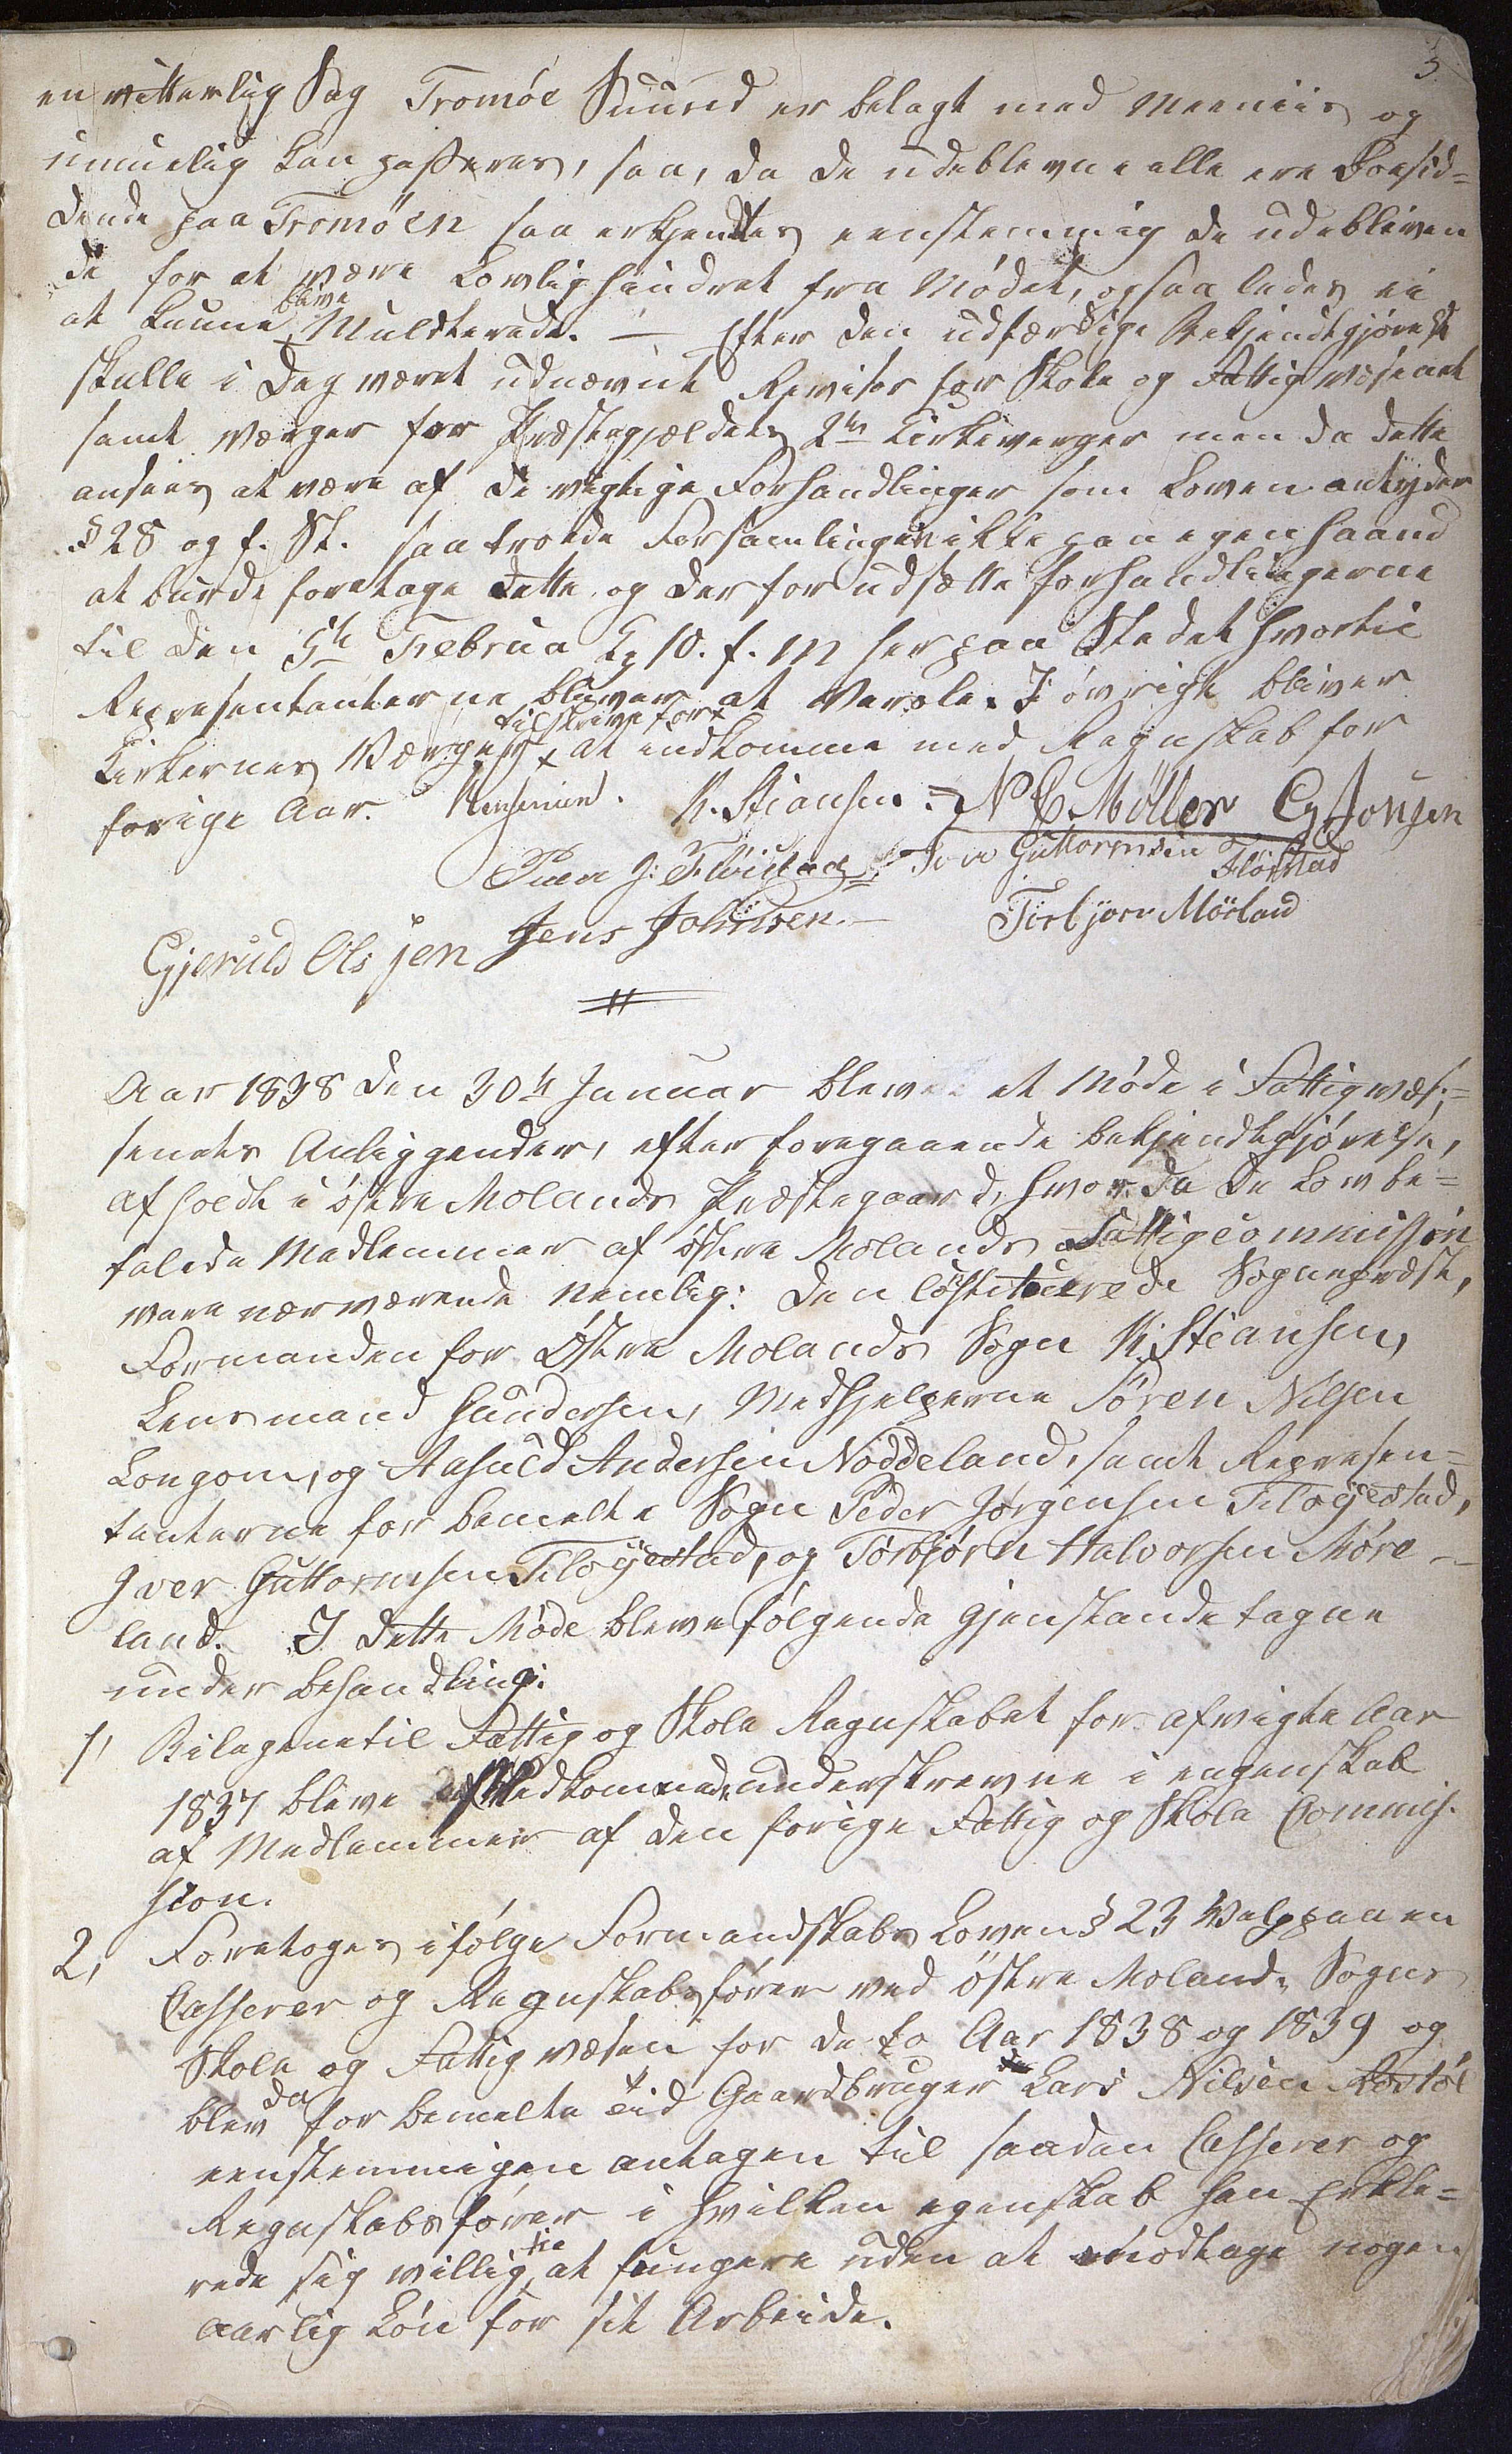 3
en vitterlig Sag Tromöe Suund er belagt med Meeniis og
umuelig kan passeres, saa, da de udeblevne alle ere Boesid=
dende paa Tromöen saa erkjendtes eenstemmig de udebleven
de for at være Lovlig hindret fra Mödet, ogsaaledes ei
at kunne blive Muldterede. — Efter den udfærdige Bekjendtgjörelse
skulle i Dag været udnævnt Revisor for Skole og Fattigvæsenet
samt Værger for Præstegjældets 2de Kirkeverger men da dette
ansees at være af de vigtige Forhandlinger som Loven antyder
§ 28 og f. St. saa troede Forsamlingen ikke paa egen Haand
at burde foretage dette og derfor udsætte forhandlingerne
til den 5te Februa Kl 10. f. M her paa Stedet hvortil
Representanterne bliver at Varsle. I övrigt bliver
Kirkernes Værger tilskreve for at indkomme med Regnskab for
forige Aar. K. Stiansen. N C. Möller G Jonsen
Peder J: Flöistad Iver Guttormsen Flöistad
Gjeruld Olssen Jens Johnsen. Torbjørn Mörland
Aar 1838 den 30te Januar blev et Möde i Fattigvæs=
senets Anliggender, efter foregaaende bekjendtgjörelse,
afholdt i östre Molands Præstegaard, hvor da de Lovbe=
falede Medlemmer af östre Molands Fattigcommission
vare nærværende nemlig: Den Constituerede Sognepræst,
Formanden for Östre Molands Sogn K. Stiansen,
Lensmand Gundersen, Medhjelperne Sören Nilsen
Longom, og Aasuld Andersen Nöddeland, samt Represen=
tanterne for bemelte Sogn Peder Jörgensen Flöyestad,
Iver Guttormsen Flöyestad, og Torbjörn Halvorsen Möre
land. I dette Möde bleve fölgende Gjenstande tagne
under behandling:
1, Bilagene til Fattig og Skole Regnskabet for afvigte Aar
1837 bleve af Vedkommende underskrevne i egenskab
af Medlemmer af den forige Fattig og Skole Commis-
sion.
2, Foretoges ifölge Formandskabs Loven § 23 Valg paa en
Casserer og Regnskabsförer ved östre Molands Sogns
Skole og Fattigvæsen for de to Aar 1838 og 1839 og
blev da for bemelte tid Gaardbruger Lars Nilsen Rostöl
eenstemmigen antagen til saadan Casserer og
Regnskabsförer i hvilken egenskab han Erklæ=
rede sig villig til at fungere uden at modtage nogen
aarlig Lön for sit Arbeide.